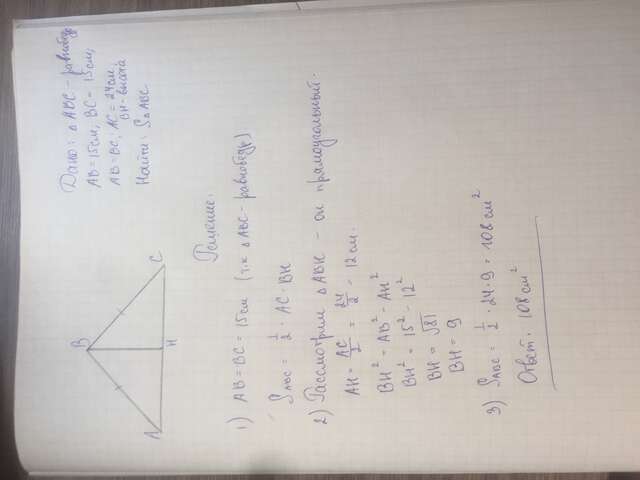 B
A
H
C
Дано: △ABC - равнобедр
AB = 15см, BC = 15см,
AB = BC, AC = 24см,
BH - высота
Найти: S△ABC
Решение.
1) AB = BC = 15см (т.к △ABC - равнобедр).
S ABC = 1/2 · AC · BH
2) Рассмотрим △ABH - он прямоугольный.
AH = AC/2 = 24/2 = 12 см.
BH² = AB² - AH²
BH² = 15² - 12²
BH = √81
BH = 9
3) S ABC = 1/2 · 24 · 9 = 108 см²
Ответ. 108 см²